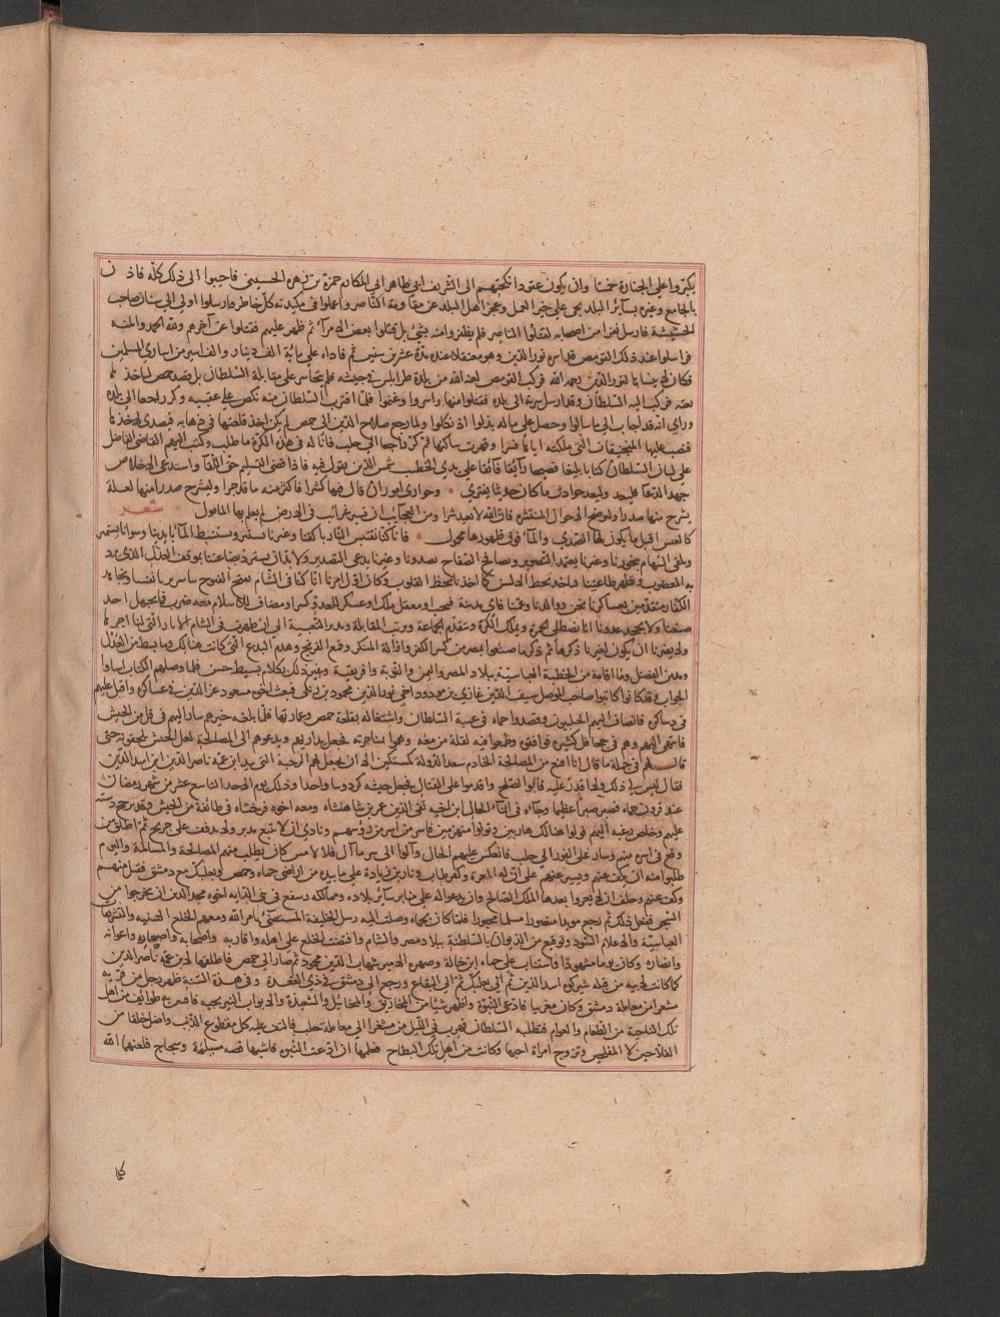 يكبروا على الجنازة خمسا وان يكون عقود انكحتهم الى الشريف ابى طاهر ابى المكارم حمزة بن زهره الحسينى فاجيبوا الى ذلك كله فاذن
بالجامع وغيره بسائر البلد بحى على خير العمل وعجز اهل البلد عن مقاومة الناصر واعملوا فى مكيدته كل خاطر فارسلوا اولا الى سنان صاحب
الحشيشة فارسل نفرا من اصحابه لقتلوا الناصر فلم يظفروا منه بشئ بل قتلوا بعض الامرآ ثم ظهر عليهم فقتلوا عن آخرهم ولله الحمد والمنه
فراسلوا عند ذلك القومص وهو معتقلا عنده مدة عشر سنين ثم فاداه على مائة الف دينار والف اسير من اسارى المسلمين
فركب القومص لعنه الله من بلده طرابلس فى جيشه فلم يتجاسر على مقابلة السلطان بل قصد حمص لياخذ
فركب اليه السلطان وقد ارسل سرية الى بلده فقتلوا منها واسروا وغنموا فلما اقترب السلطان منه نكص على عقبيه وكر راجعا الى بلده
وراى انه قد اجاب الى ما سالوا وحصل على ما له بذلوا ولما رجع صلاح الدين الى حمص لم يكن اخذ قلعتها فى ذهابه فتصدى لاخذها
فنصب عليها المنجنيقات التى ملكته اياها قسرا وقهرت ساكنها ثم كر راجعا الى حلب فاناله فى هذه الكرة ما طلب وكتب اليهم القاضى الفاضل
على لسان السلطان كتابا بليغا فصيحا رآئقا فآئقا على يدى الخطيب شمس الدين يقول فيه فاذا قضى التسليم حق اللقآ واستدعى الاخلاص
جهد الدعآ فليعد وليعد حوادث ما كان حديثا يفترى وجوارى امور ان قال فيها كثيرا فاكثر منه ما قد جرا وليشرح صدرا منها لعله
يشرح منها صدرا وليوضح الاحوال المنتشره فان الله لا يعبد شرا ومن العجايب ان نسير غرائب فى الارض لم يعلم بها المامول شعر
كالعيس اقتل ما يكون لها الصدى والمآ فوق ظهورها محمول فانا كنا نقتبس النار باكفنا وغيرنا يستنير ونستنبط المآ بايدينا وسوانا يستمير
ونلقى السهام بنحورنا وغيرنا يعتمد التصوير ونصافح الصفاح بصدورنا وغيرنا يدعى التصدير ولا بد ان نسترد بضاعتنا بموقف العدل الذى يرد
به المغصوب ونظهر طاعتنا وناخذ بحظ الالسن كما اخذنا بحظ القلوب وكان اول امرنا انا كنا فى الشام نفتح الفتوح مباشرين بانفسنا ونجاهد
الكفار متقدمين بعساكرنا نحن ووالدنا وعمنا فاى مدينة فتحت او معقل ملك او عسكر للعدو كسر او مصاف للاسلام معه ضرب فما يجهل احد
صنعنا ولا يجحد عدونا انا نصطلى الجمرة ونملك الكرة ونتقدم الجماعة ونرتب المقاتلة وندبر التعبية الى ان ظهرت فى الشام الاثار التى لنا اجرها
ولا يضرنا ان يكون لغيرنا ذكرها ثم ذكر ما صنعوا بمصر من كسر الكفر وازالة المنكر وقمع الفرنج وهدم البدع التى كانت هنالك وما بسط من العدل
ونشر من الفضل وما اقامه من الخطبة العباسية ببلاد المصر واليمن والنوبة وافريقية وغير ذلك بكلام بسيط حسن فلما وصلهم الكتاب اساوا
الجواب وقد كانوا كاتبوا صاحب الموصل سيف الدين غازى بن مودود اخى نور الدين محمود بن زنكى فبعث اخوه مسعود عز الدين فى عساكره واقبل عليهم
فى دساكره فانضاف اليهم الحلبيون وقصدوا حماه فى غيبة السلطان واشتغاله بقلعة حمص وعمارتها فلما بلغه خبرهم سار اليهم فى قل من الجيش
فانتهى اليهم وهم فى جحافل كثيره فواقفوه وطمعوا فيه لقلة من معه وهموا بمناجزته فجعل يداريهم ويدعوهم الى المصالحة لعل الجيش يلحقونه حتى
قال لهم فى جملة ما قال انا اقنع من المصالحة الخادم سعد الدولة كمشتكين الا ان يجعل لهم الرحبة التى بيد ابن عمه ناصر الدين ابن اسد الدين
فقال ليس لى ذلك ولا اقدر عليه فابوا الصلح واقدموا على القتال فجعل جيشه كردوسا واحدا وذلك يوم الاحد التاسع عشر من شهر رمضان
عند قرون حماه فصبر صبرا عظيما وجآءه فى اثنآ الحال ابن اخيه تقى الدين عمر بن شاهنشاه ومعه اخوه فرخشاه فى طائفة من الجيش وقد ترجح دسته
عليهم وخلص رعبه اليهم فولوا هنالك هاربين وتولوا منهزمين فاسر من اسر من رؤسهم ونادى ان لا يتبع مدبر ولا يذفف على جريح ثم اطلق من
وقع فى اسره منهم وسار على الفور الى حلب فانعكس عليهم الحال وآلوا الى شر مآل فبالامس كان يطلب منهم المصالحة والمسالمة واليوم
طلبوا منه ان يكف عنهم ويسير عنهم على ان له المعرة وكفرطاب زيادة على ما بيده من اراضى حماه وحمص وبعلبك مع دمشق فقبل منهم
وكف عنهم وحلف ان لا يغزوا بعدها الملك الصالح وان يدعوا له على منابر سآئر بلاده وممالكه وشفع فى بنى الدايه اخوه مجد الدين ان يخرجوا من
السجن ففعل ذلك ثم رجع مويدا منصورا مسلما محبورا فلما كان بحماه وصلت اليه رسل الخليفة المستضئ بامر الله ومعهم الخلع السنيه والتشريفات
العباسية والاعلام السود وتوقيع من الديوان بالسلطنة ببلاد مصر والشام وافيضت الخلع على اهله واقاربه واصحابه واصهاره واعوانه
وانصاره وكان يوما مشهودا واستناب على حماه ابن خاله وصهره الامير شهاب الدين محمود ثم صار الى حمص فاطلقها لابن عمه ناصر الدين
كما كانت لابيه من قبله شيركوه اسد الدين ثم الى بعلبك ثم الى البقاع ورجع الى دمشق فى ذى القعدة وفى هذه السنة ظهر رجل من قرية
مشغرا من معاملة دمشق وكان مغربيا فادعى النبوة واظهر شيئا من المخاريق والمحائيل والشعبذة والابواب النيرنجيه فافتتن به طوايف من اهل
تلك الناحية من الطغام والعوام فتطلبه السلطان فهرب فى الليل من مشغرا الى معاملة حلب فالتف عليه كل مقطوع الذنب واضل خلقا من
الفلاحين لا المفلحين وتزوج امراة احبها وكانت من اهل تلك البطاح فعلمها ان ادعت النبوة فاشبها قصه مسيلمة وسجاح فلعنهما الله
كما